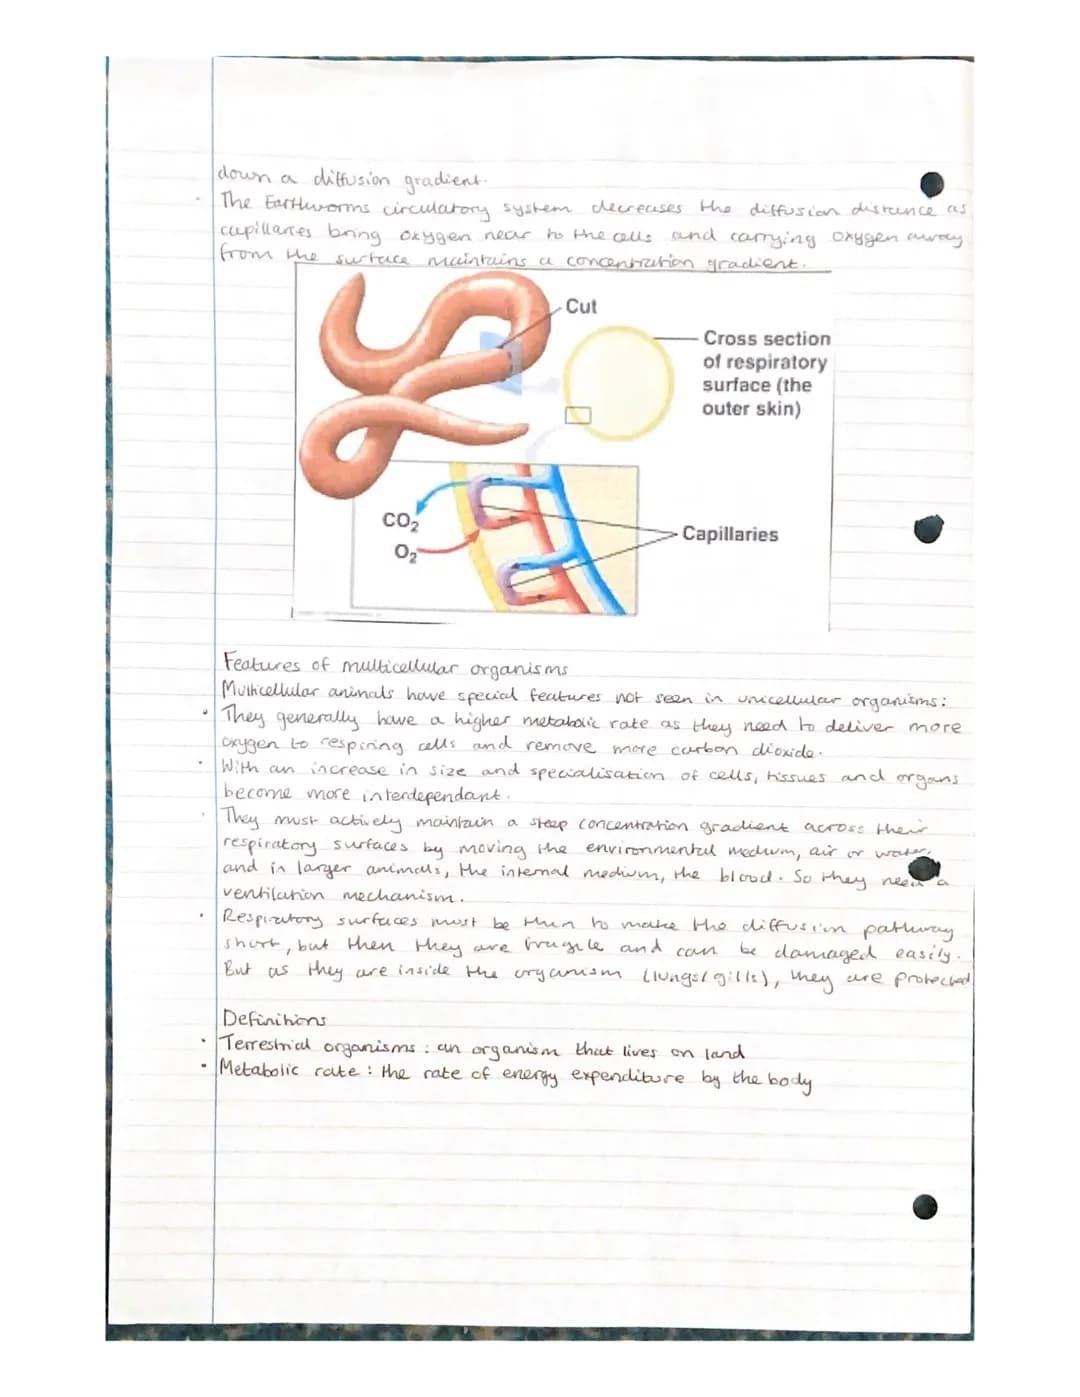 down a diffusion gradient.
The Earthworms circulatory system decreases the diffusion distance as
capillaries bring oxygen near to the cells and carrying oxygen away
from the surface maintains a concentration gradient.
Cut
Cross section
of respiratory
surface (the
outer skin)
CO₂
O₂
Capillaries
Features of multicellular organisms
Multicellular animals have special features not seen in unicellular organisms:
• They generally have a higher metabolic rate as they need to deliver more
oxygen to respiring cells and remove more carbon dioxide.
• With an increase in size and specialisation of cells, tissues and organs
become more interdependant.
• They must actively maintain a steep concentration gradient across their
respiratory surfaces by moving the environmental medium, air or water,
and in larger animals, the internal medium, the blood. So they need a
ventilation mechanism.
• Respiratory surfaces must be thin to make the diffusion pathway
short, but then they are fragile and can be damaged easily.
But as they are inside the organism (lungs/gills), they are protected
Definitions
• Terrestrial organisms : an organism that lives on land
• Metabolic rate : the rate of energy expenditure by the body